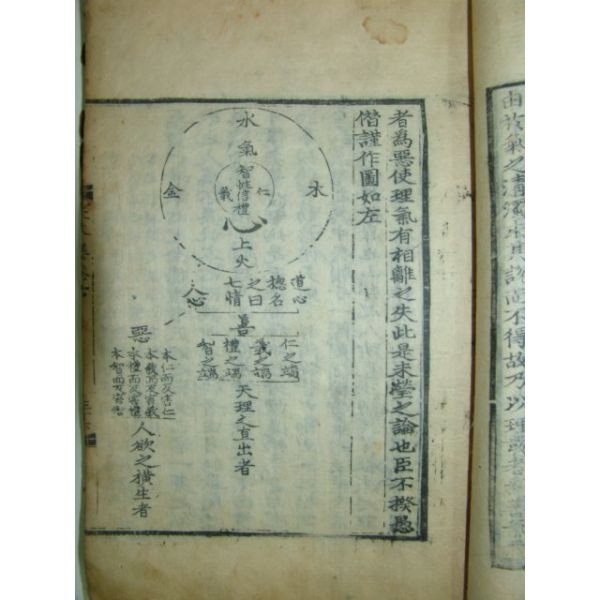 由於氣之清濁求其說而不得故乃以理
者為惡使理氣有相離之失此是未瑩之論也臣不揆愚
僭謹作圖如左
水
氣
木
金
智
仁
性信
義
禮
心
火
道心
摠名
之曰
七情
人心
善
仁之端
義之端
禮之端
智之端
天理之直出者
惡
本仁而反害仁
本義而反害義
本禮而反害禮
本智而反害智
人欲之橫生者